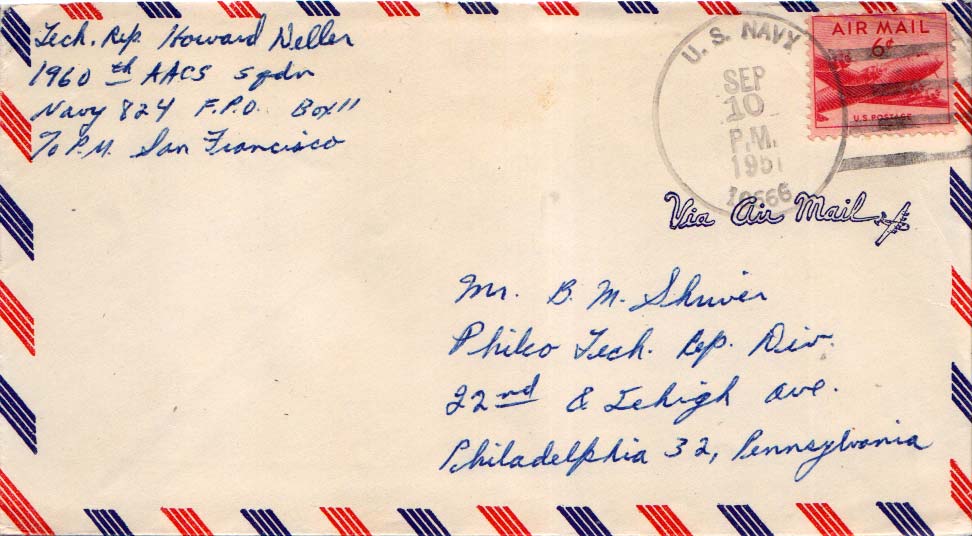 Tech. Rep. Howard Neller
1960 th AACS Sqdn
Navy 824 F.P.O. Box 11
℅ P.M. San Francisco
U. S. NAVY
SEP
10
P.M.
1951
AIR MAIL
6¢
U.S. POSTAGE
Via Air Mail
Mr. B. M. Shriver
Philco Tech. Rep. Div.
22nd & Lehigh Ave.
Philadelphia 32, Pennsylvania